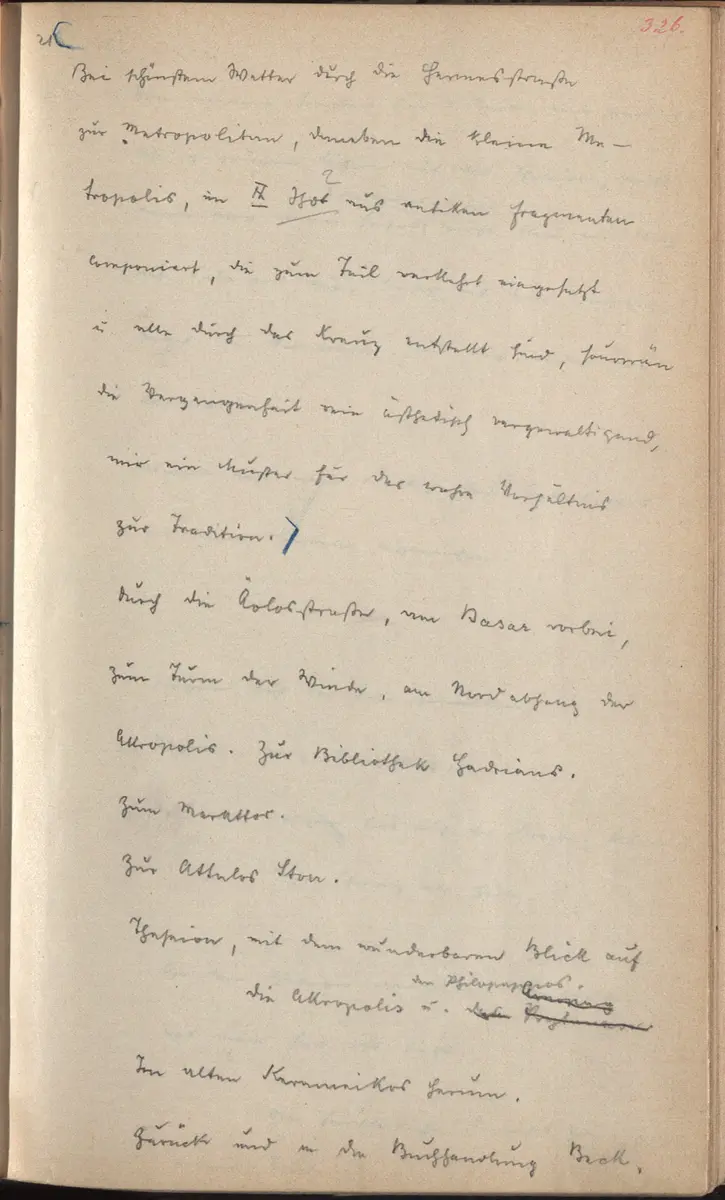 326.
21
Bei schönstem Wetter durch die Hermesstraße
zur Metropolitan, daneben die kleine Me-
tropolis, im IX Jhdt ? aus antiken Fragmenten
componiert, die zum Teil verkehrt eingesetzt
u alle durch das Kreuz entstellt sind, souverän
die Vergangenheit rein ästhetisch vergewaltigend,
mir ein Muster für das wahre Verhältnis
zur Tradition.
durch die Äolosstraße, am Basar vorbei,
zum Turm der Winde, am Nordabhang der
Akropolis. Zur Bibliothek Hadrians.
Zum Markttor.
Zur Attalos Stoa.
Theseion, mit dem wunderbaren Blick auf
den Philopappos.
die Akropolis u. den Areopag
Im alten Kerameikos herum.
Zurück und in die Buchhandlung Beck.